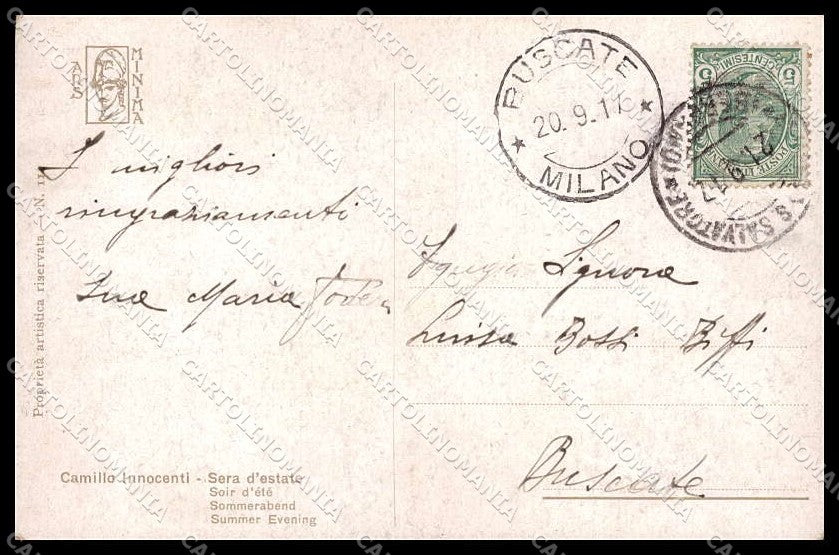 ARS MINIMA
BUSCATE
20.9.17
MILANO
5 CENTESIMI 5
POSTE ITALIANE
S. SALVATORE
21.9.17
I migliori
ringraziamenti
Sua Maria
Egregia Signora
Luisa Bossi Biffi
Buscate
Proprietà artistica riservata — N. 11
Camillo Innocenti - Sera d'estate
Soir d'été
Sommerabend
Summer Evening
CARTOLINOMANIA